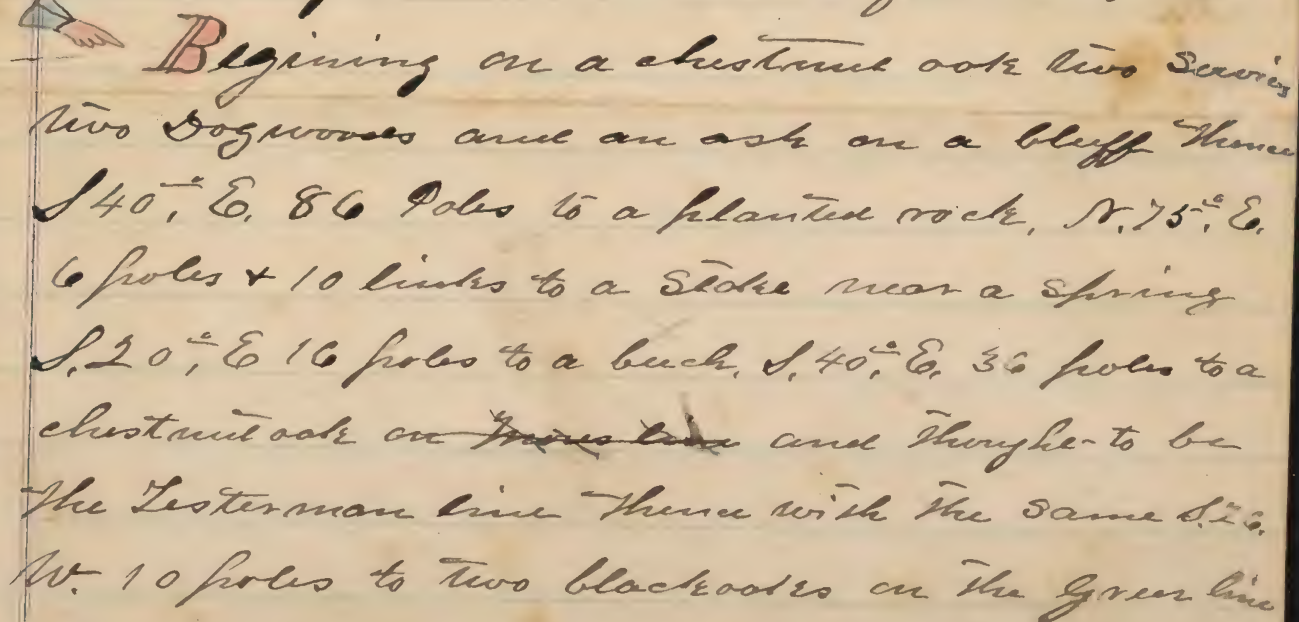 Begining on a chestnut oak two Servies
two Dogwoods and an ash on a bluff Thence
S 40°, E. 86 Poles to a planted rock, N. 75°, E.
6 poles & 10 links to a Stake near a spring
S. 20°, E 16 poles to a buch, S. 40°, E. 36 poles to a
chestnut oak on and thought to be
the Testerman line Thence with the same S.
W. 10 poles to two blackoaks on the Green line